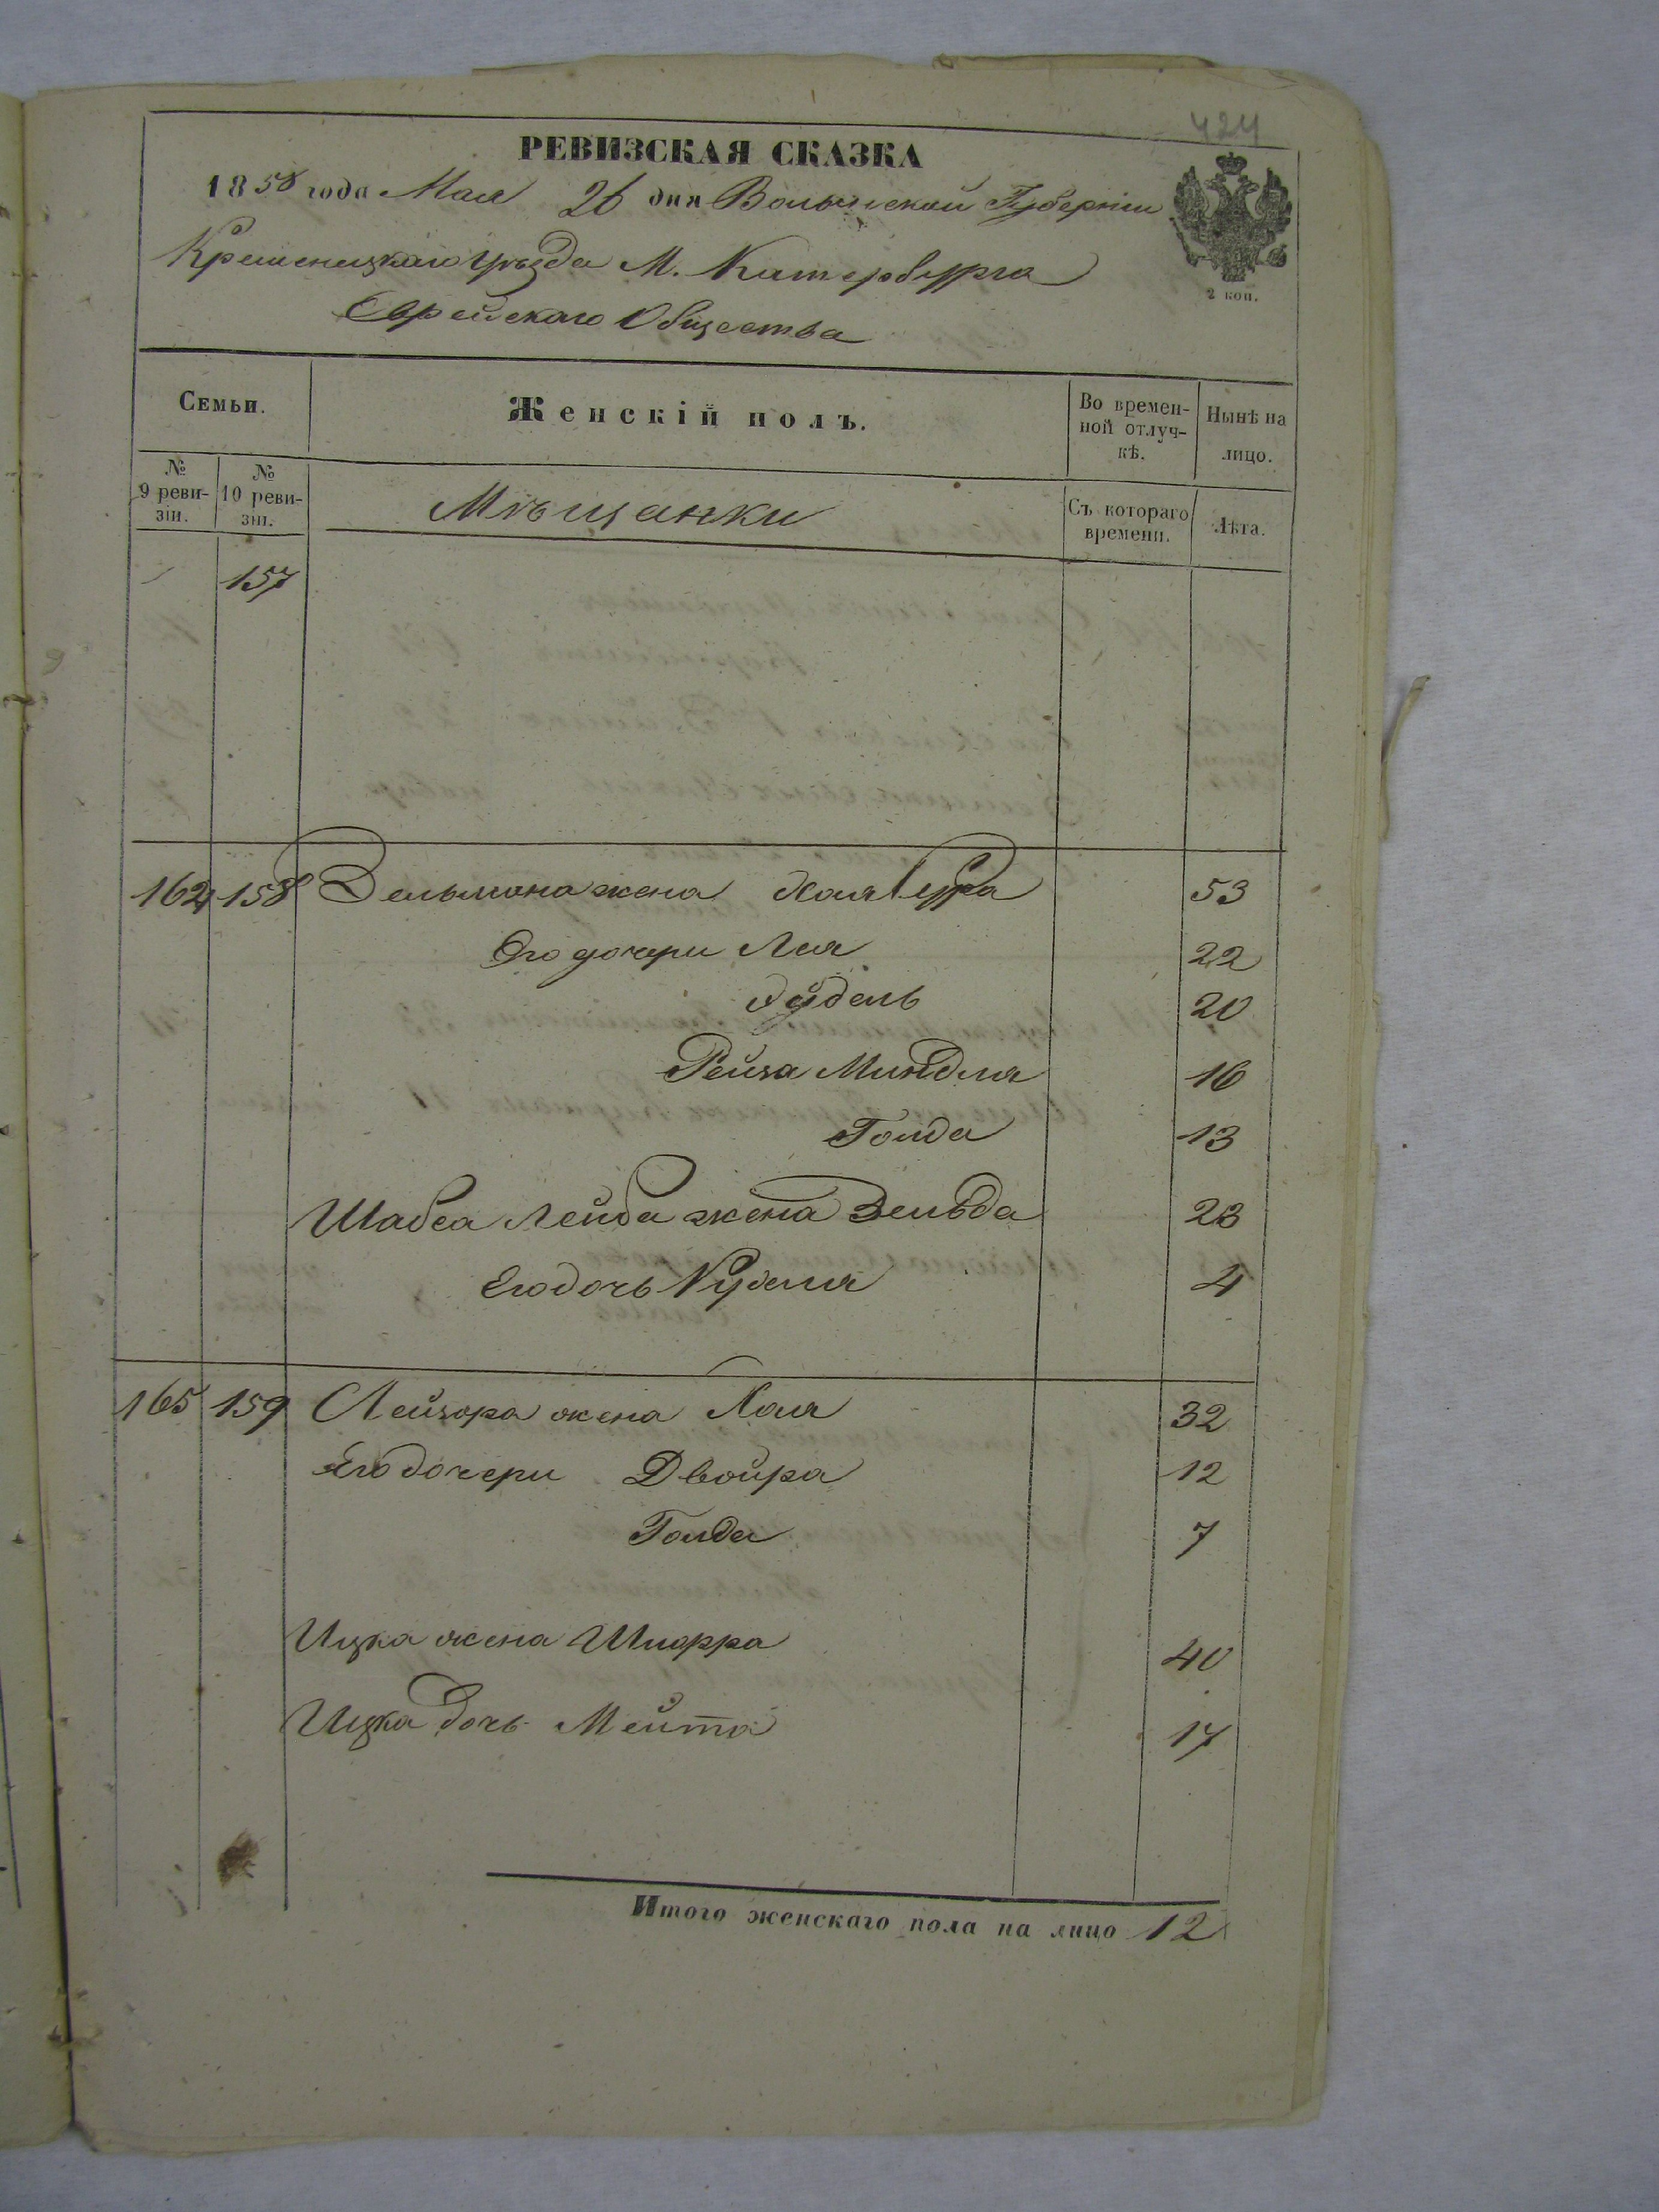 424
РЕВИЗСКАЯ СКАЗКА
1858 года Мая 26 дня Волынской Губерніи
Кременецкаго уѣзда М. Катербурга
Еврейскаго Общества
2 коп.
Семьи. Женскій полъ. Во времен-ной отлуч-кѣ. Нынѣ на лицо.
№ 9 реви-зіи. № 10 реви-зіи. Мѣщанки Съ котораго времени. Лѣта.
157
164 158 Зельмана жена Хая 53
Его дочери Лея 22
Эйдель 20
Рейза Миндля 16
Голда 13
Шабса Лейба жена Зельда 23
Его дочь 4
165 159 Лейзора жена Хая 32
Его дочери Двойра 12
Голда 7
Ицка жена Шифра 40
Ицка дочь Мейта 17
Итого женскаго пола на лицо 12